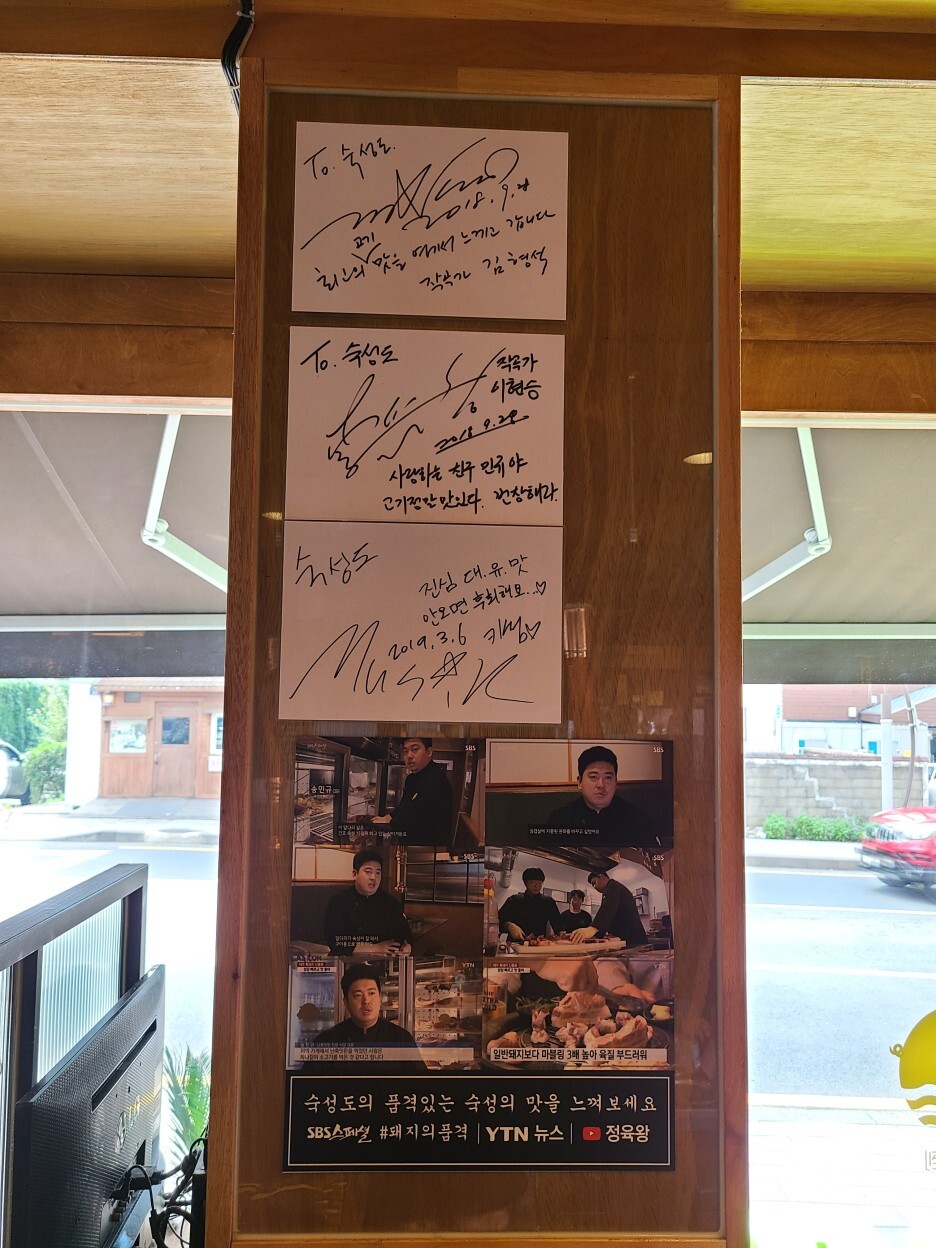 To. 숙성도.
2018. 9. 28
최고의 고기 맛을 여기서 느끼고 갑니다
작곡가 김형석
To. 숙성도
작곡가
이현승
2018 9.28
사랑하는 친구 민규야
고기정말맛있다. 번창해라.
숙성도
진심 대.유.맛
안오면 후회해요..♡
2019. 3. 6 키썸♡
SBS
송민규
SBS
SBS
SBS
YTN
YTN
일반돼지보다 마블링 3배 높아 육질 부드러워
숙성도의 품격있는 숙성의 맛을 느껴보세요
SBS스페셜 #돼지의품격 | YTN 뉴스 | 정육왕